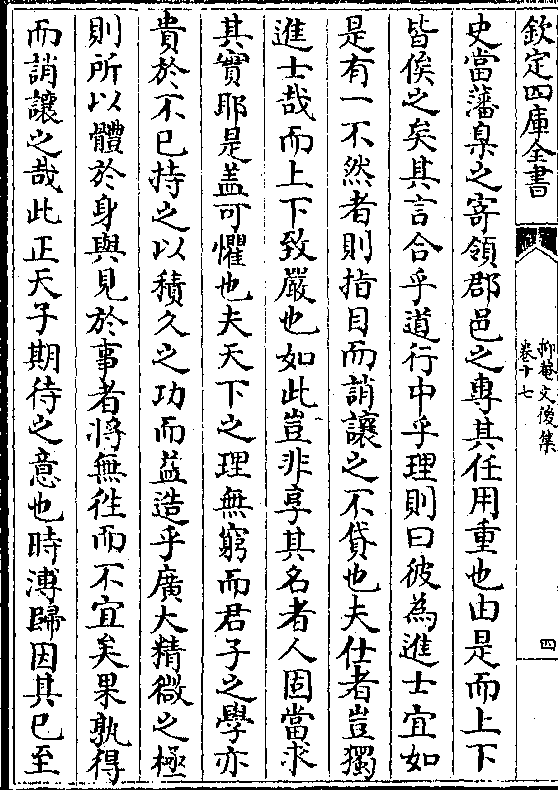 欽定四庫全書
抑菴文後集
卷十七
四
史當藩臬之寄領郡邑之專其任用重也由是而上下
皆俟之矣其言合乎道行中乎理則曰彼為進士宜如
是有一不然者則指目而誚讓之不貸也夫仕者豈獨
進士哉而上下致嚴也如此豈非享其名者人固當求
其實耶是盖可懼也夫天下之理無窮而君子之學亦
貴於不已持之以積久之功而益造乎廣大精微之極
則所以體於身與見於事者將無徃而不宜矣果孰得
而誚讓之哉此正天子期待之意也時溥歸因其已至